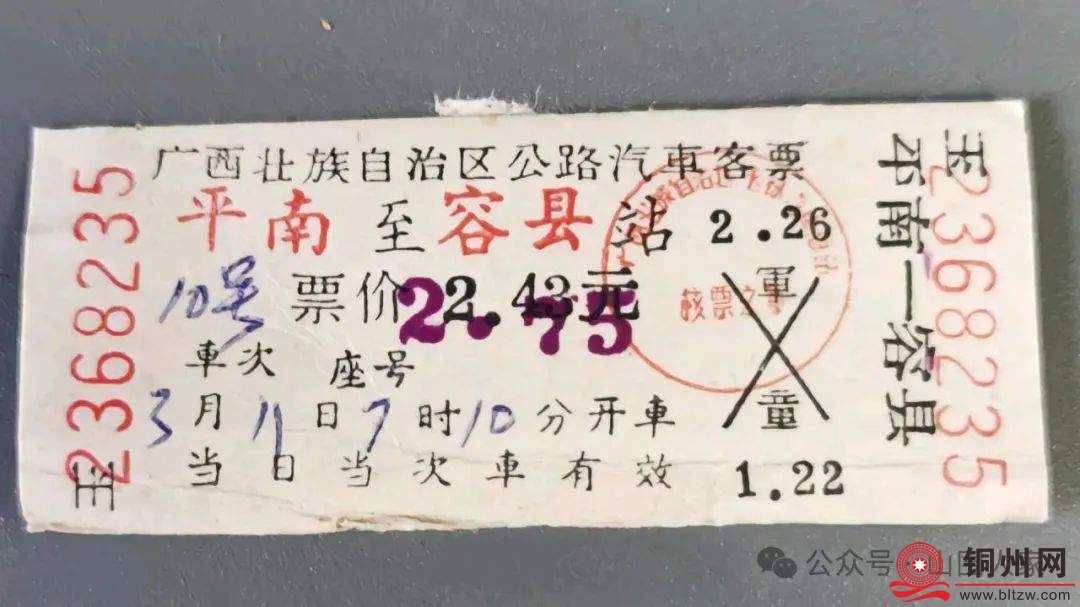 广西壮族自治区公路汽車客票
平南至容县站 2.26
10号 票价 2.43元 軍
2.75
核票之章
車次 座号
3月11日7时10分开車 童
当日当次車有效 1.22
玉 2368235
玉 2368235
平南—容县
公众号
铜州网
www.bltzw.com